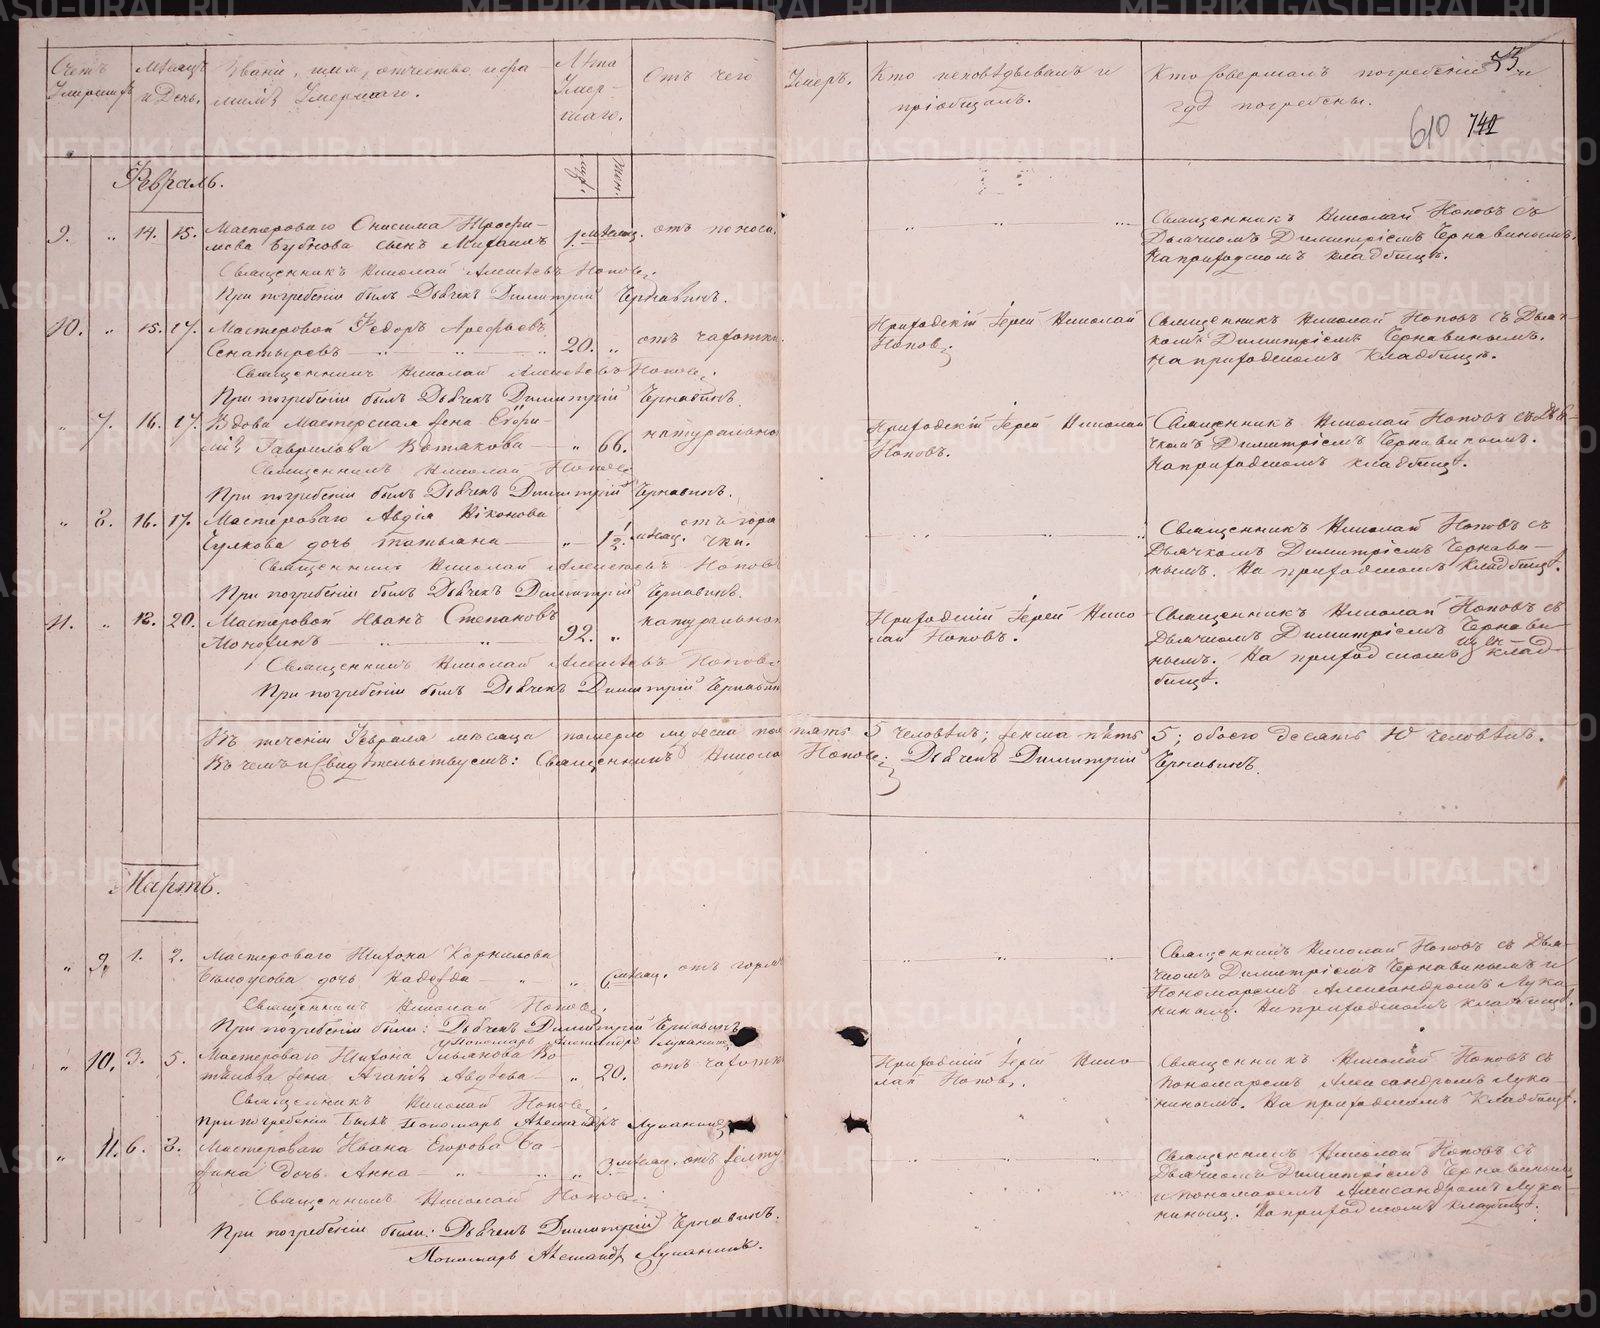 Счетъ Умершихъ
Мѣсяцъ и День.
Званіе, имя, отчество и фамилія Умершаго.
Лѣта Умершаго.
Муж.
Жен.
Отъ чего Умеръ.
Кто исповѣдывалъ и пріобщалъ.
Кто Совершалъ погребеніе и гдѣ погребены.
53
610
Февраль.
9. „ 14. 15. Мастероваго Онисима Трофи-
мова сынъ Михаилъ 1. мѣсяц. отъ поноса.
Священникъ Николай Алексѣевъ Поповъ.
При погребеніи былъ Дьячекъ Димитрій Чернавинъ.
Священникъ Николай Поповъ съ
Дьячкомъ Димитріемъ Чернавинымъ.
На приходскомъ кладбищѣ.
10. „ 15. 17. Мастеровой Ѳедоръ Арефьевъ
20. „ отъ чахотки
Священникъ Николай Алексѣевъ Поповъ.
При погребеніи былъ Дьячекъ Димитрій Чернавинъ.
Приходскій Іерей Николай
Поповъ.
Священникъ Николай Поповъ съ Дьяч-
комъ Димитріемъ Чернавинымъ.
На приходскомъ Кладбищѣ.
„ 7. 16. 17. Вдова Мастерская жена
Гаврилова „ 66. натурально
Священникъ Николай Поповъ
При погребеніи былъ Дьячекъ Димитрій Чернавинъ.
Приходскій Іерей Николай
Поповъ.
Священникъ Николай Поповъ съ Дья-
чкомъ Димитріемъ Чернавинымъ.
На приходскомъ кладбищѣ.
„ 8. 16. 17. Мастероваго Авдія Никонова
Чулкова дочь Татьяна „ 1½. мѣсяц. отъ горя
чки.
Священникъ Николай Алексѣевъ Поповъ
При погребеніи былъ Дьячекъ Димитрій Чернавинъ.
Священникъ Николай Поповъ съ
Дьячкомъ Димитріемъ Чернави-
нымъ. На приходскомъ кладбищѣ.
11. „ 18. 20. Мастеровой Иванъ Степановъ
92. „ натурально
Священникъ Николай Алексѣевъ Поповъ
При погребеніи былъ Дьячекъ Димитрій Чернавинъ
Приходскій Іерей Нико-
лай Поповъ.
Священникъ Николай Поповъ съ
Дьячкомъ Димитріемъ Чернави
нымъ. На приходскомъ клад-
бищѣ.
Въ теченіи Февраля мѣсяца померло мужеска пола пять 5 человѣкъ; женска пять 5; обоего десять 10 человѣкъ.
Въ чемъ и Свидѣтельствуемъ: Священникъ Никола Поповъ; Дьячекъ Димитрій Чернавинъ.
Мартъ.
„ 9. 1. 2. Мастероваго Тихона Корнилова
Бѣлоусова дочь Надежда „ 6. мѣсяц. отъ горя
Священникъ Николай Поповъ.
При погребеніи были: Дьячекъ Димитрій Чернавинъ
и Пономарь Александръ Луканинъ
Священникъ Николай Поповъ съ Дья-
чкомъ Димитріемъ Чернавинымъ и
Пономаремъ Александромъ Лука-
нинымъ. На приходскомъ кладбищѣ.
„ 10. 3. 5. Мастероваго Тихона
жена Агапія Авдѣева „ 20. отъ чахотки
Священникъ Николай Поповъ.
При погребеніи былъ Пономарь Александръ Луканинъ
Приходскій Іерей Нико-
лай Поповъ.
Священникъ Николай Поповъ съ
Пономаремъ Александромъ Лука-
нинымъ. На приходскомъ Кладбищѣ.
„ 11. 6. 8. Мастероваго Ивана Егорова Ба-
жина дочь Анна „ 3. мѣсяц. отъ желту
Священникъ Николай Поповъ.
При погребеніи были: Дьячекъ Димитрій Чернавинъ.
Пономарь Александръ Луканинъ.
Священникъ Николай Поповъ съ
Дьячкомъ Димитріемъ Чернавинымъ
и пономаремъ Александромъ Лука-
нинымъ. На приходскомъ кладбищѣ.
METRIKI.GASO-URAL.RU